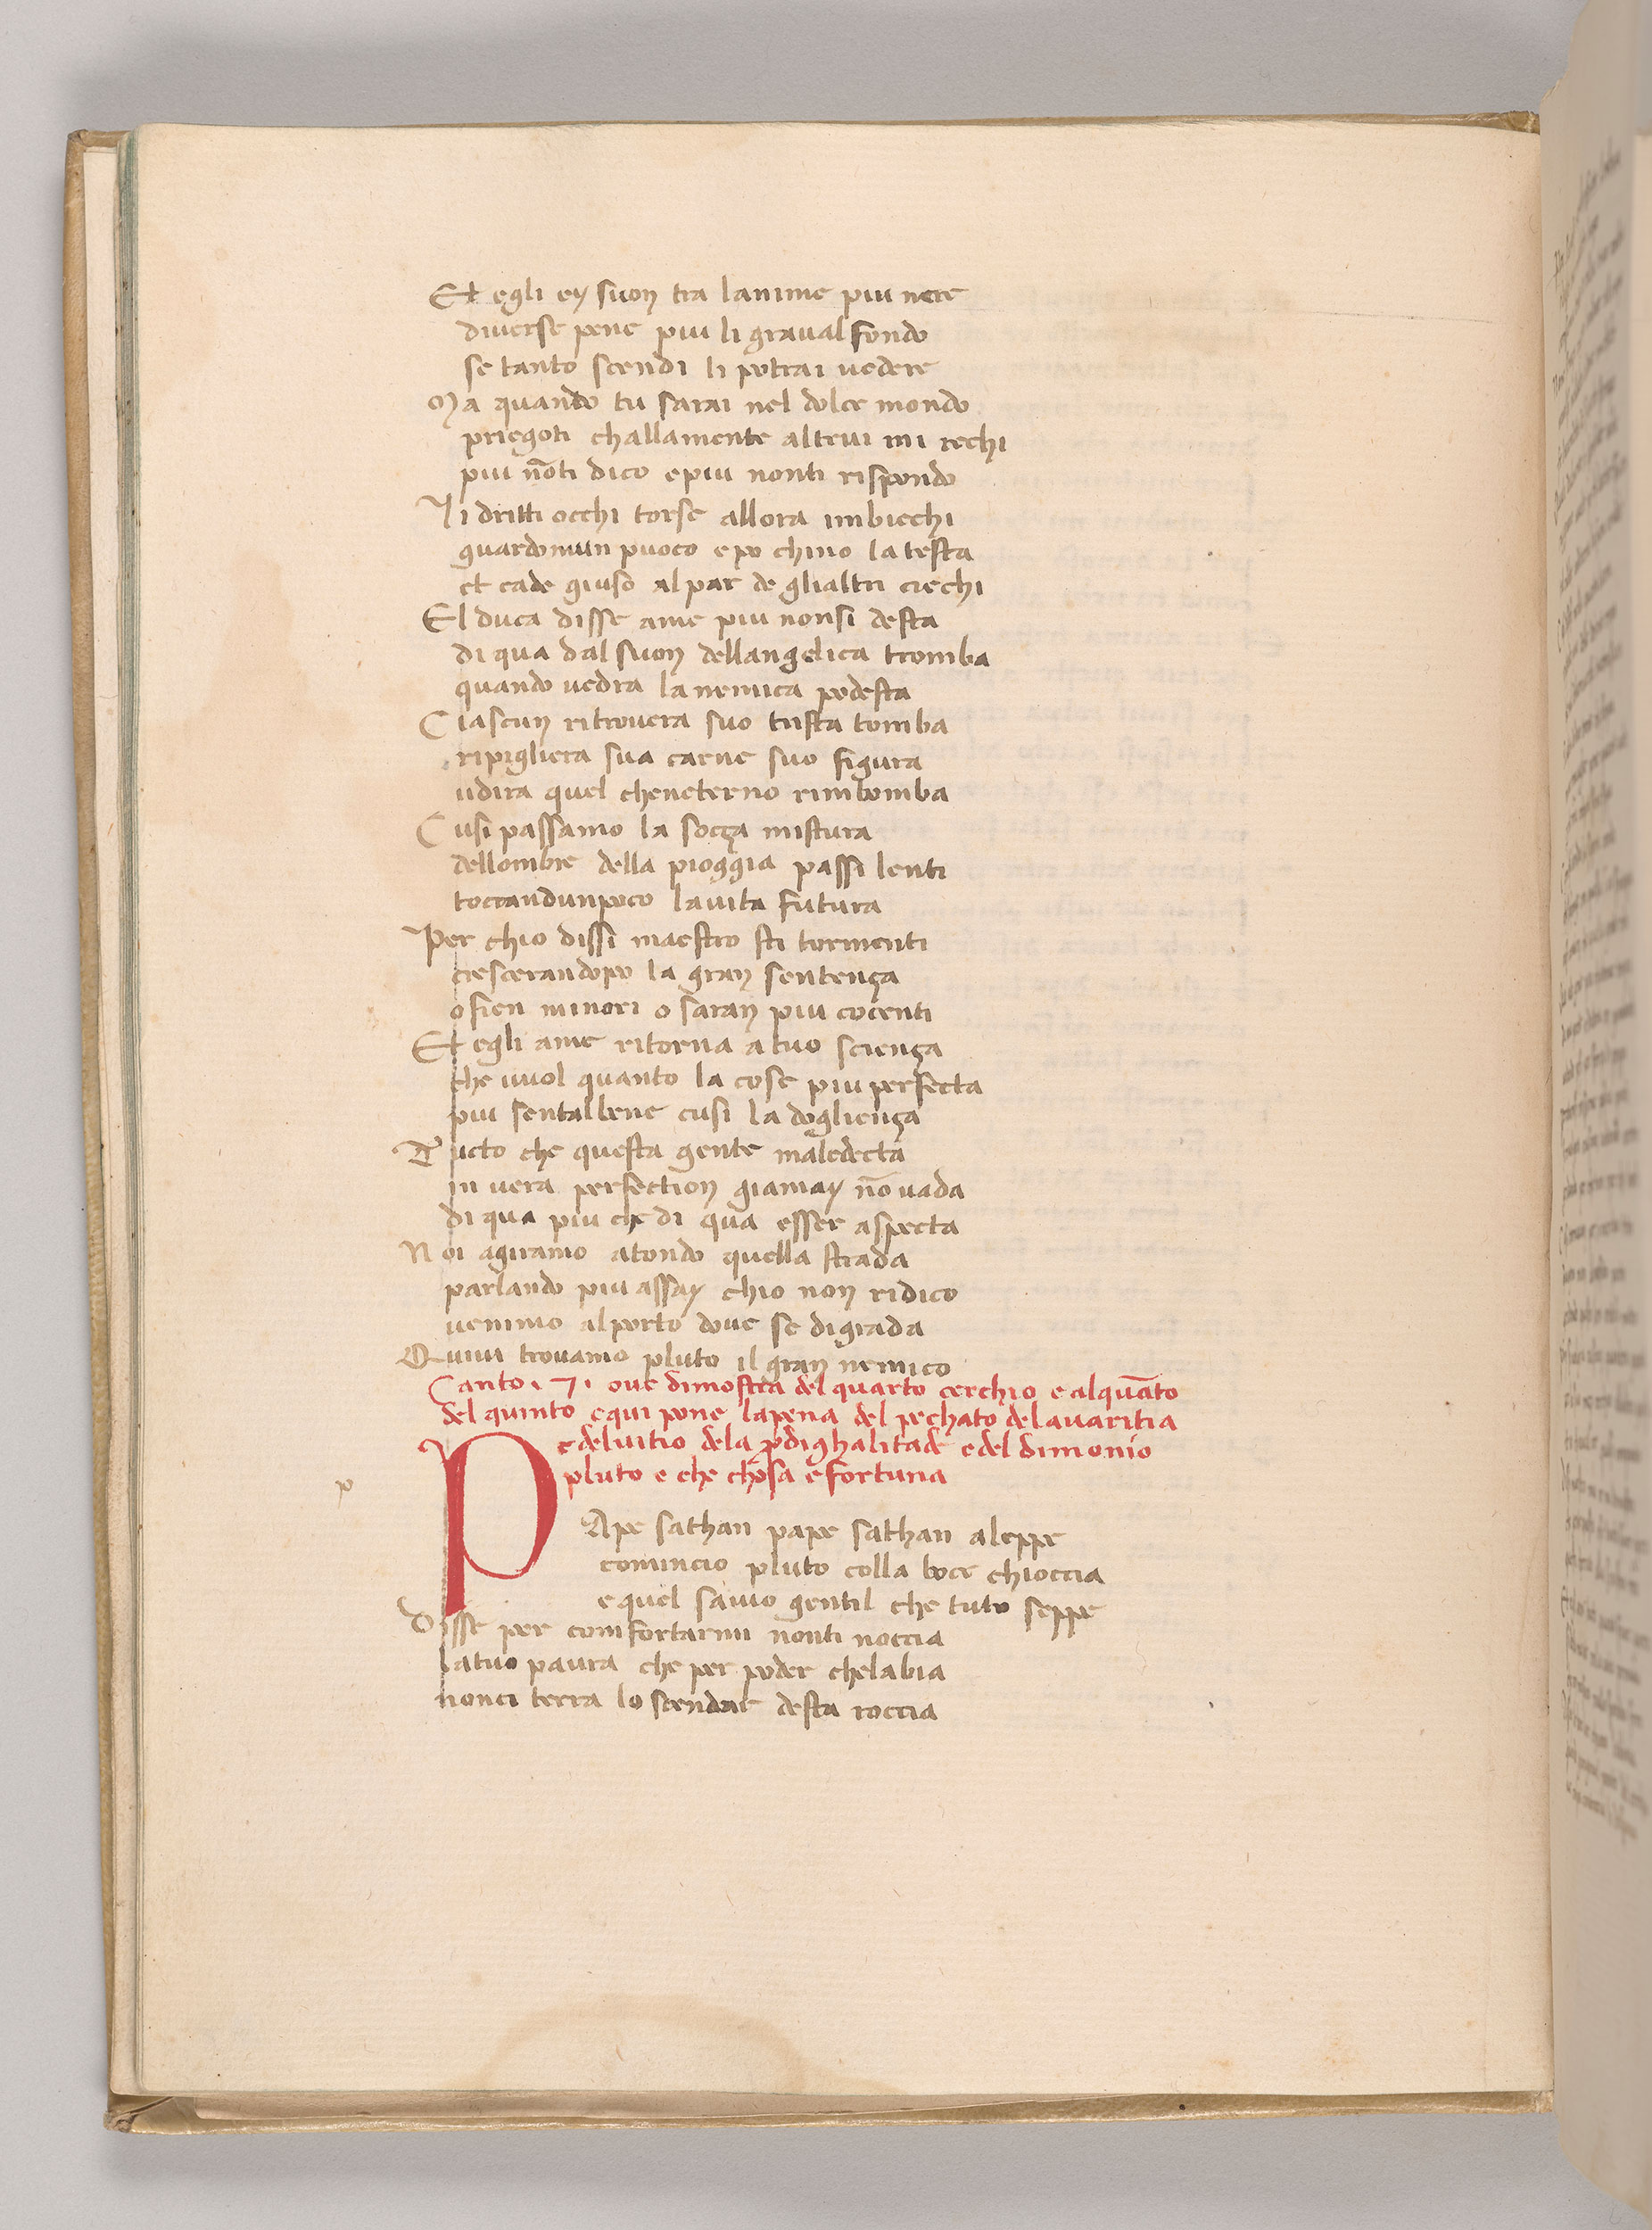 Et egli ey suon tra lanime piu nere
diverse pene piu li graval fondo
se tanto scendi li potrai vedere
Ma quando tu sarai nel dolce mondo
priegoti challamente altrui mi rechi
piu nōti dico epiu nonti rispondo
Ji dritti occhi torse allora imbiechi
guardomun puoco epo chino la testa
et cade giuso al par de glialtri ciechi
El duca disse ame piu nonsi desta
di qua dal suon dellangelica tromba
quando vedra la nemica podesta
Ciascun ritrovera suo trista tomba
ripigliera sua carne suo figura
udira quel cheneterno rimbomba
Cusi passamo la socça mistura
dellombre della pioggia passi lenti
toccandunpoco lavita futura
Per chio dissi maestro sti tormenti
crescerandopo la gran sentença
o fien minori o saran piu cocenti
Et egli ame ritorna a tuo sciença
che vuol quanto la cosa piu perfecta
piu sentalbene cusi la dogliença
Tucto che questa gente maledecta
in vera perfection giamay nō vada
di qua piu che di qua esser aspecta
Noi agiramo atondo quella strada
parlando piu assay chio non ridico
venimo alporto dove se digrada
Quivi trovamo pluto il gran nemico
Canto . 7 . ove dimostra del quarto cerchio e alquāto
del quinto equi pone lapena del pechato delavaritia
edelvitio dela pdighalitade edel dimonio
pluto e che chosa efortuna
p
PApe sathan pape sathan aleppe
comincio pluto colla boce chioccia
equel savio gentil che tuto seppe
Disse per comfortarmi nonti noccia
latuo paura che per poder chelabia
nonci terra lo scendar desta roccia